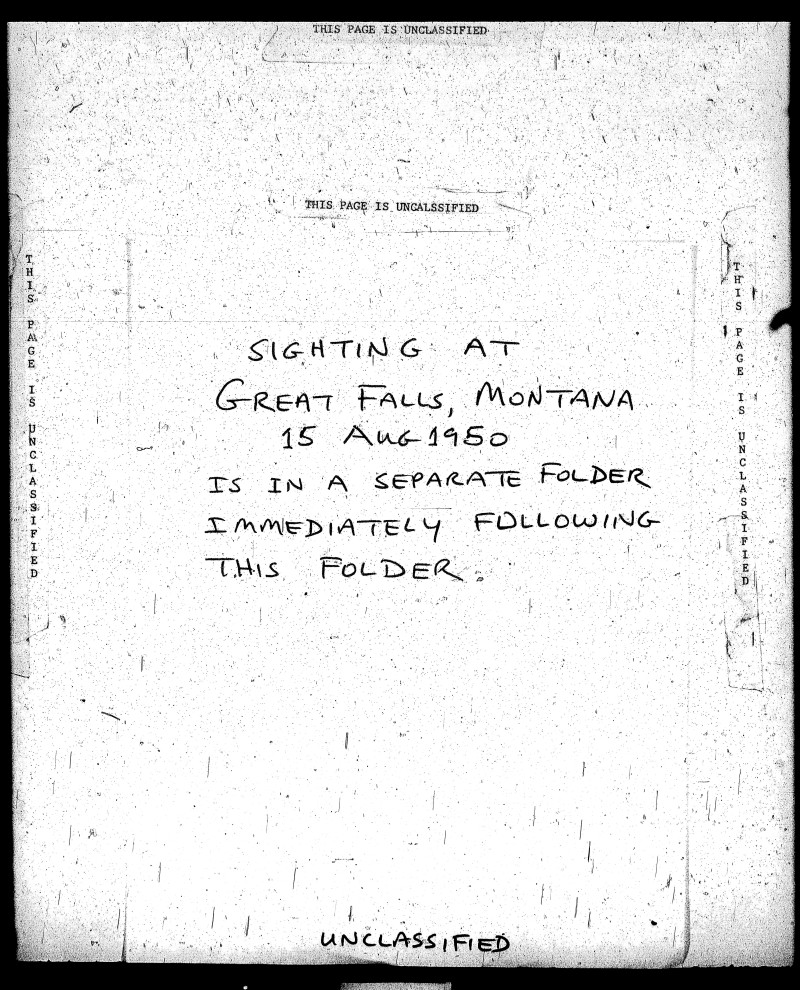 THIS PAGE IS UNCLASSIFIED
THIS PAGE IS UNCALSSIFIED
THIS PAGE IS UNCLASSIFIED
THIS PAGE IS UNCLASSIFIED
SIGHTING AT
GREAT FALLS, MONTANA
15 AUG 1950
IS IN A SEPARATE FOLDER
IMMEDIATELY FOLLOWING
THIS FOLDER.
UNCLASSIFIED